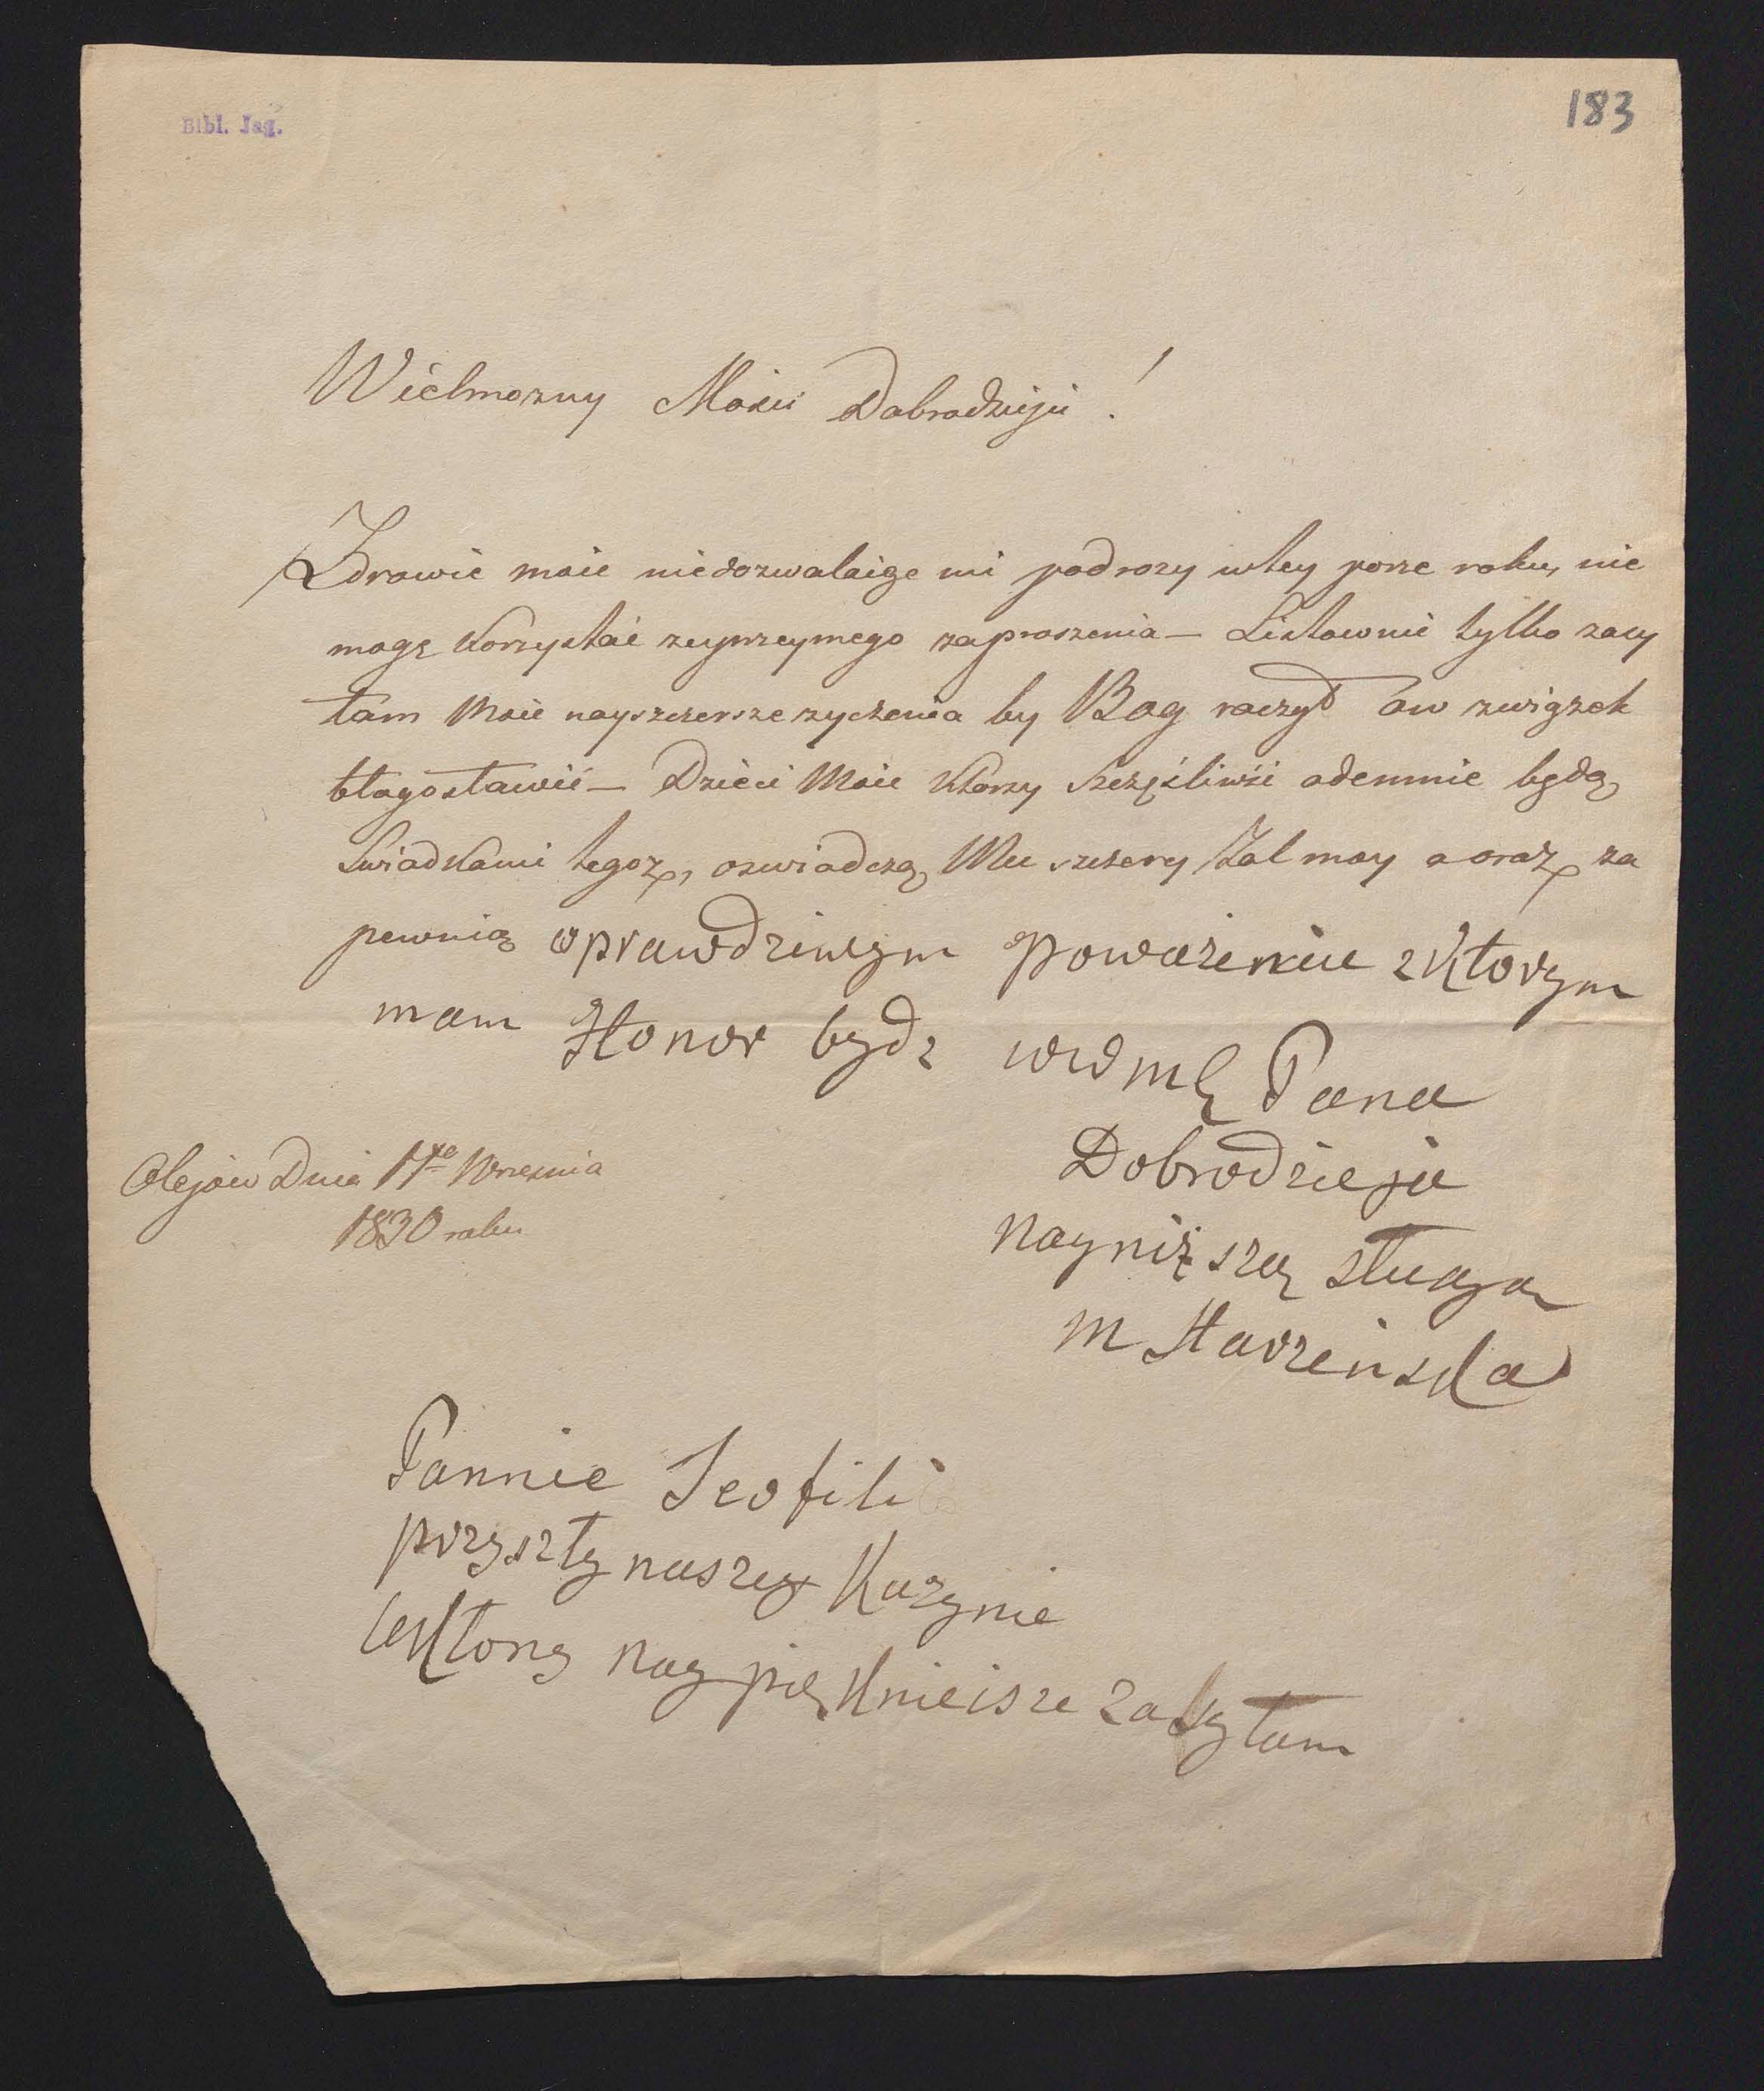 Bibl. Jag.
183
Wielmozny Mosci Dobrodzieju!
Zdrowie moie niedozwalaiąc mi podrozy wtey porze roku, nie
mogę korzystać zuprzeymego zaproszenia – Listownie tylko zasy
łam Moie nayszczersze zyczenia by Bog raczył ów związek
błogosławić – Dzieci Moie ktorzy szczęśliwśi odemnie będą
Swiadkami tegoz, oswiadczą Mu szczery żal moy a oraz za
pewnią oprawdziwym Poważeniu zktorym
mam Honor bydz WW Pana
Dobrodzieja
Olejów Dnia 17go Wrzesnia
1830 roku
nayniższą sługą
M Starzeńska
Pannie Teofili
przyszły naszey Kuzynie
Ukłony naypięknieisze zasyłam